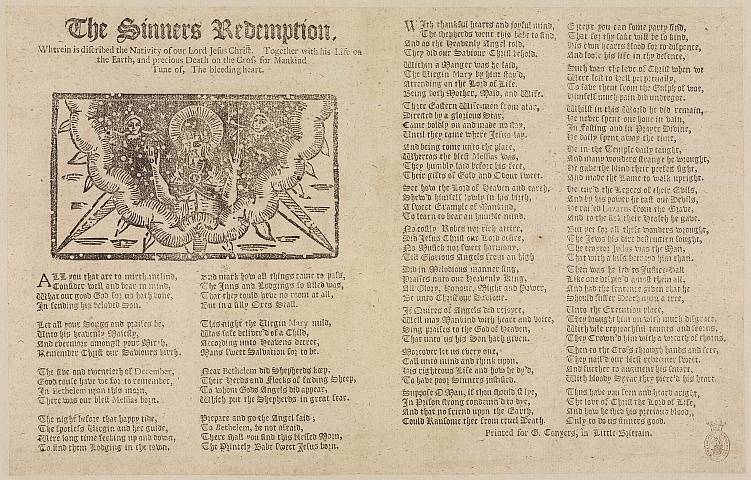 The Sinners Redemption.
Wherein is discribed the Nativity of our Lord Jesus Christ. Together with his Life on
the Earth, and precious Death on the Cross for Mankind
Tune of, The bleeding heart.
ALL you that are to mirth inclind,
Consider well and bear in mind,
What our good God for us hath done,
In sending his beloved Son.
Let all your Songs and praises be,
Unto his heavenly Majesty,
And evermore amongst your Mirth,
Remember Christ our Saviours birth.
The five and twentieth of December,
Good cause have we for to remember,
In Bethelem upon this morn,
There was our blest Messias born.
The night before that happy tide,
The spotless Virgin and her guide,
Were long time seeking up and down,
To find them Lodging in the town.
And mark how all things came to pass,
The Inns and Lodgings so filled was,
That they could have no room at all,
But in a silly Oxes Stall.
This night the Virgin Mary mild,
Was safe deliver'd of a Child,
According unto Heavens decree,
Mans sweet Salvation for to be.
Near Bethelem did Shepherds keep,
Their Herds and Flocks of feeding Sheep,
To whom Gods Angels did appear,
Which put the Shepherds in great fear.
Prepare and go the Angel said;
To Bethelem, be not afraid,
There shall you find this blessed Morn,
The Princely Babe sweet Jesus born.
With thankful hearts and joyful mind,
The shepherds went this babe to find,
And as the Heavenly Angel told,
They did our Saviour Christ behold.
Within a Manger was he laid,
The Virgin Mary by him stay'd,
Attending on the Lord of Life,
Being both Mother, Maid, and Wife.
Three Eastern Wise-men from afar,
Directed by a glorious Star,
Came boldly on and made no stay,
Until they came where Jesus lay.
And being come unto the place,
Whereas the blest Messias was,
They humbly laid before his feet,
Their gifts of Gold and Odour sweet.
See how the Lord of Heaven and earth,
Shew'd himself lowly in his birth,
A sweet Example of Mankind,
To learn to bear an humble mind.
No costly Robes nor rich attire,
Did Jesus Christ our Lord desire,
No Musick nor sweet harmony,
Till Glorious Angels from on high
Did in Melodious manner sing,
Praises unto our Heavenly King,
All Glory, Honour, Might and Power,
Be unto Christ our Saviour.
If Quires of Angels did rejoyce,
Well may Mankind with heart and voice,
Sing praises to the God of Heaven,
That unto us his Son hath given.
Moreover let us every one,
Call unto mind and think upon,
His righteous Life and how he dy'd,
To have poor Sinners justified.
Suppose O Man, if thou should'st lye,
In Prison strong condemn'd to dye,
And that no friend upon the Earth,
Could Ransome thee from cruel Death.
Except you can some party find,
That for thy sake will be so kind,
His own hearts blood for to dispence,
And loose his life in thy defence,
Such was the love of Christ when we
Were lost in Hell perpetually,
To save them from the Gulph of woe,
Himself much pain did undergoe.
Whilst in this World he did remain,
He never spent one hour in vain,
In Fasting and in Prayer Divine,
He daily spent away the time.
He in the Temple daily taught,
And many wonders strange he wrought,
He gave the blind their perfect sight,
And made the Lame to walk upright.
He cur'd the Lepers of their Evils,
And by his power he cast out Devils,
He raised Lazarus from the Grave,
And to the sick their health he gave.
But yet for all these wonders wrought,
The Jews his dire destruction sought,
The traytor Judas was the Man,
That with a kiss betrayed him than.
Then was he led to Justice-Hall
Like one despis'd amost them all,
And had the sentence given that he
Should suffer Death upon a tree,
Unto the Execution place,
They brought him on with much disgrace,
With vile reproachful taunts and scorns,
They Crown'd him with a wreath of thorns.
Then to the Cross through hands and feet,
They nail'd our blest redeemer sweet.
And further to augment his smart,
With bloody Spear they pierc'd his heart.
Thus have you seen and heard aright,
The love of Christ the Lord of Life,
And how he shed his precious blood,
Only to do us sinners good.
Printed for G. Conyers, in Little Brittain.